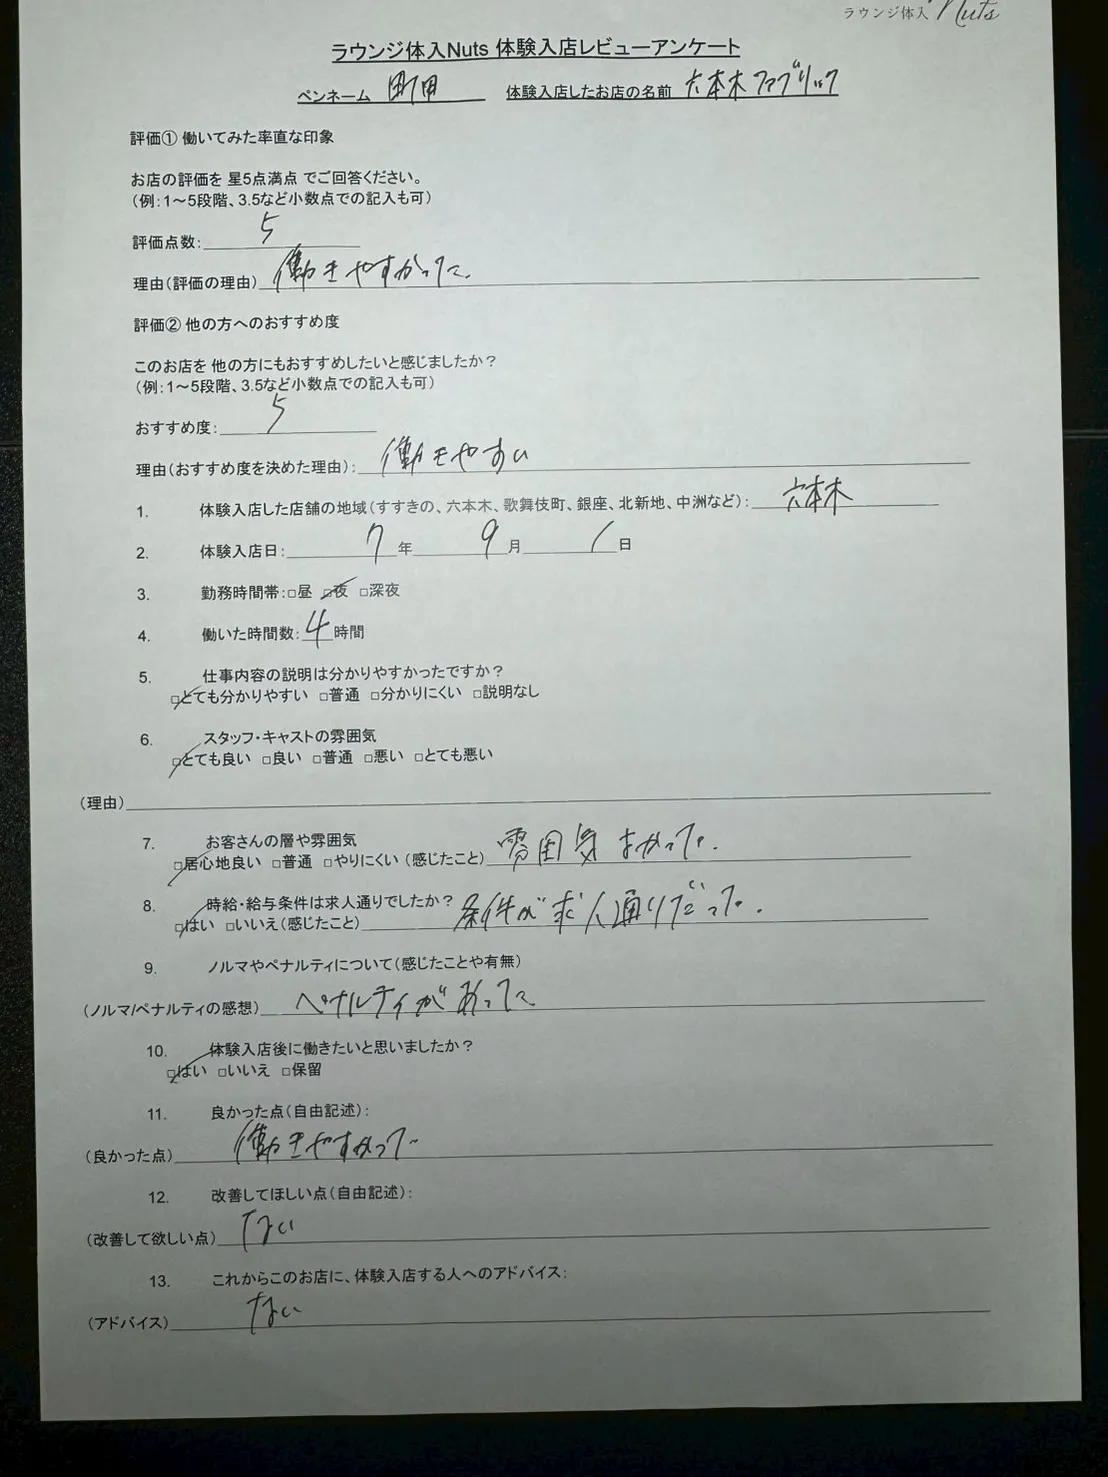 ラウンジ体入 Nuts
ラウンジ体入Nuts 体験入店レビューアンケート
ペンネーム 町田 体験入店したお店の名前 六本木ファブリック
評価① 働いてみた率直な印象
お店の評価を 星5点満点 でご回答ください。
(例:1〜5段階、3.5など小数点での記入も可)
評価点数: 5
理由(評価の理由) 働きやすかった.
評価② 他の方へのおすすめ度
このお店を 他の方にもおすすめしたいと感じましたか?
(例:1〜5段階、3.5など小数点での記入も可)
おすすめ度: 5
理由(おすすめ度を決めた理由): 働きやすい
1. 体験入店した店舗の地域(すすきの、六本木、歌舞伎町、銀座、北新地、中洲など): 六本木
2. 体験入店日: 7 年 9 月 1 日
3. 勤務時間帯:□昼 □夜 □深夜
4. 働いた時間数: 4 時間
5. 仕事内容の説明は分かりやすかったですか?
□とても分かりやすい □普通 □分かりにくい □説明なし
6. スタッフ・キャストの雰囲気
□とても良い □良い □普通 □悪い □とても悪い
(理由)
7. お客さんの層や雰囲気
□居心地良い □普通 □やりにくい (感じたこと) 雰囲気よかった.
8. 時給・給与条件は求人通りでしたか?
□はい □いいえ(感じたこと) 条件が求人通りだった.
9. ノルマやペナルティについて(感じたことや有無)
(ノルマ/ペナルティの感想) ペナルティがあった
10. 体験入店後に働きたいと思いましたか?
□はい □いいえ □保留
11. 良かった点(自由記述):
(良かった点) 働きやすかった
12. 改善してほしい点(自由記述):
(改善して欲しい点) ない
13. これからこのお店に、体験入店する人へのアドバイス:
(アドバイス) ない